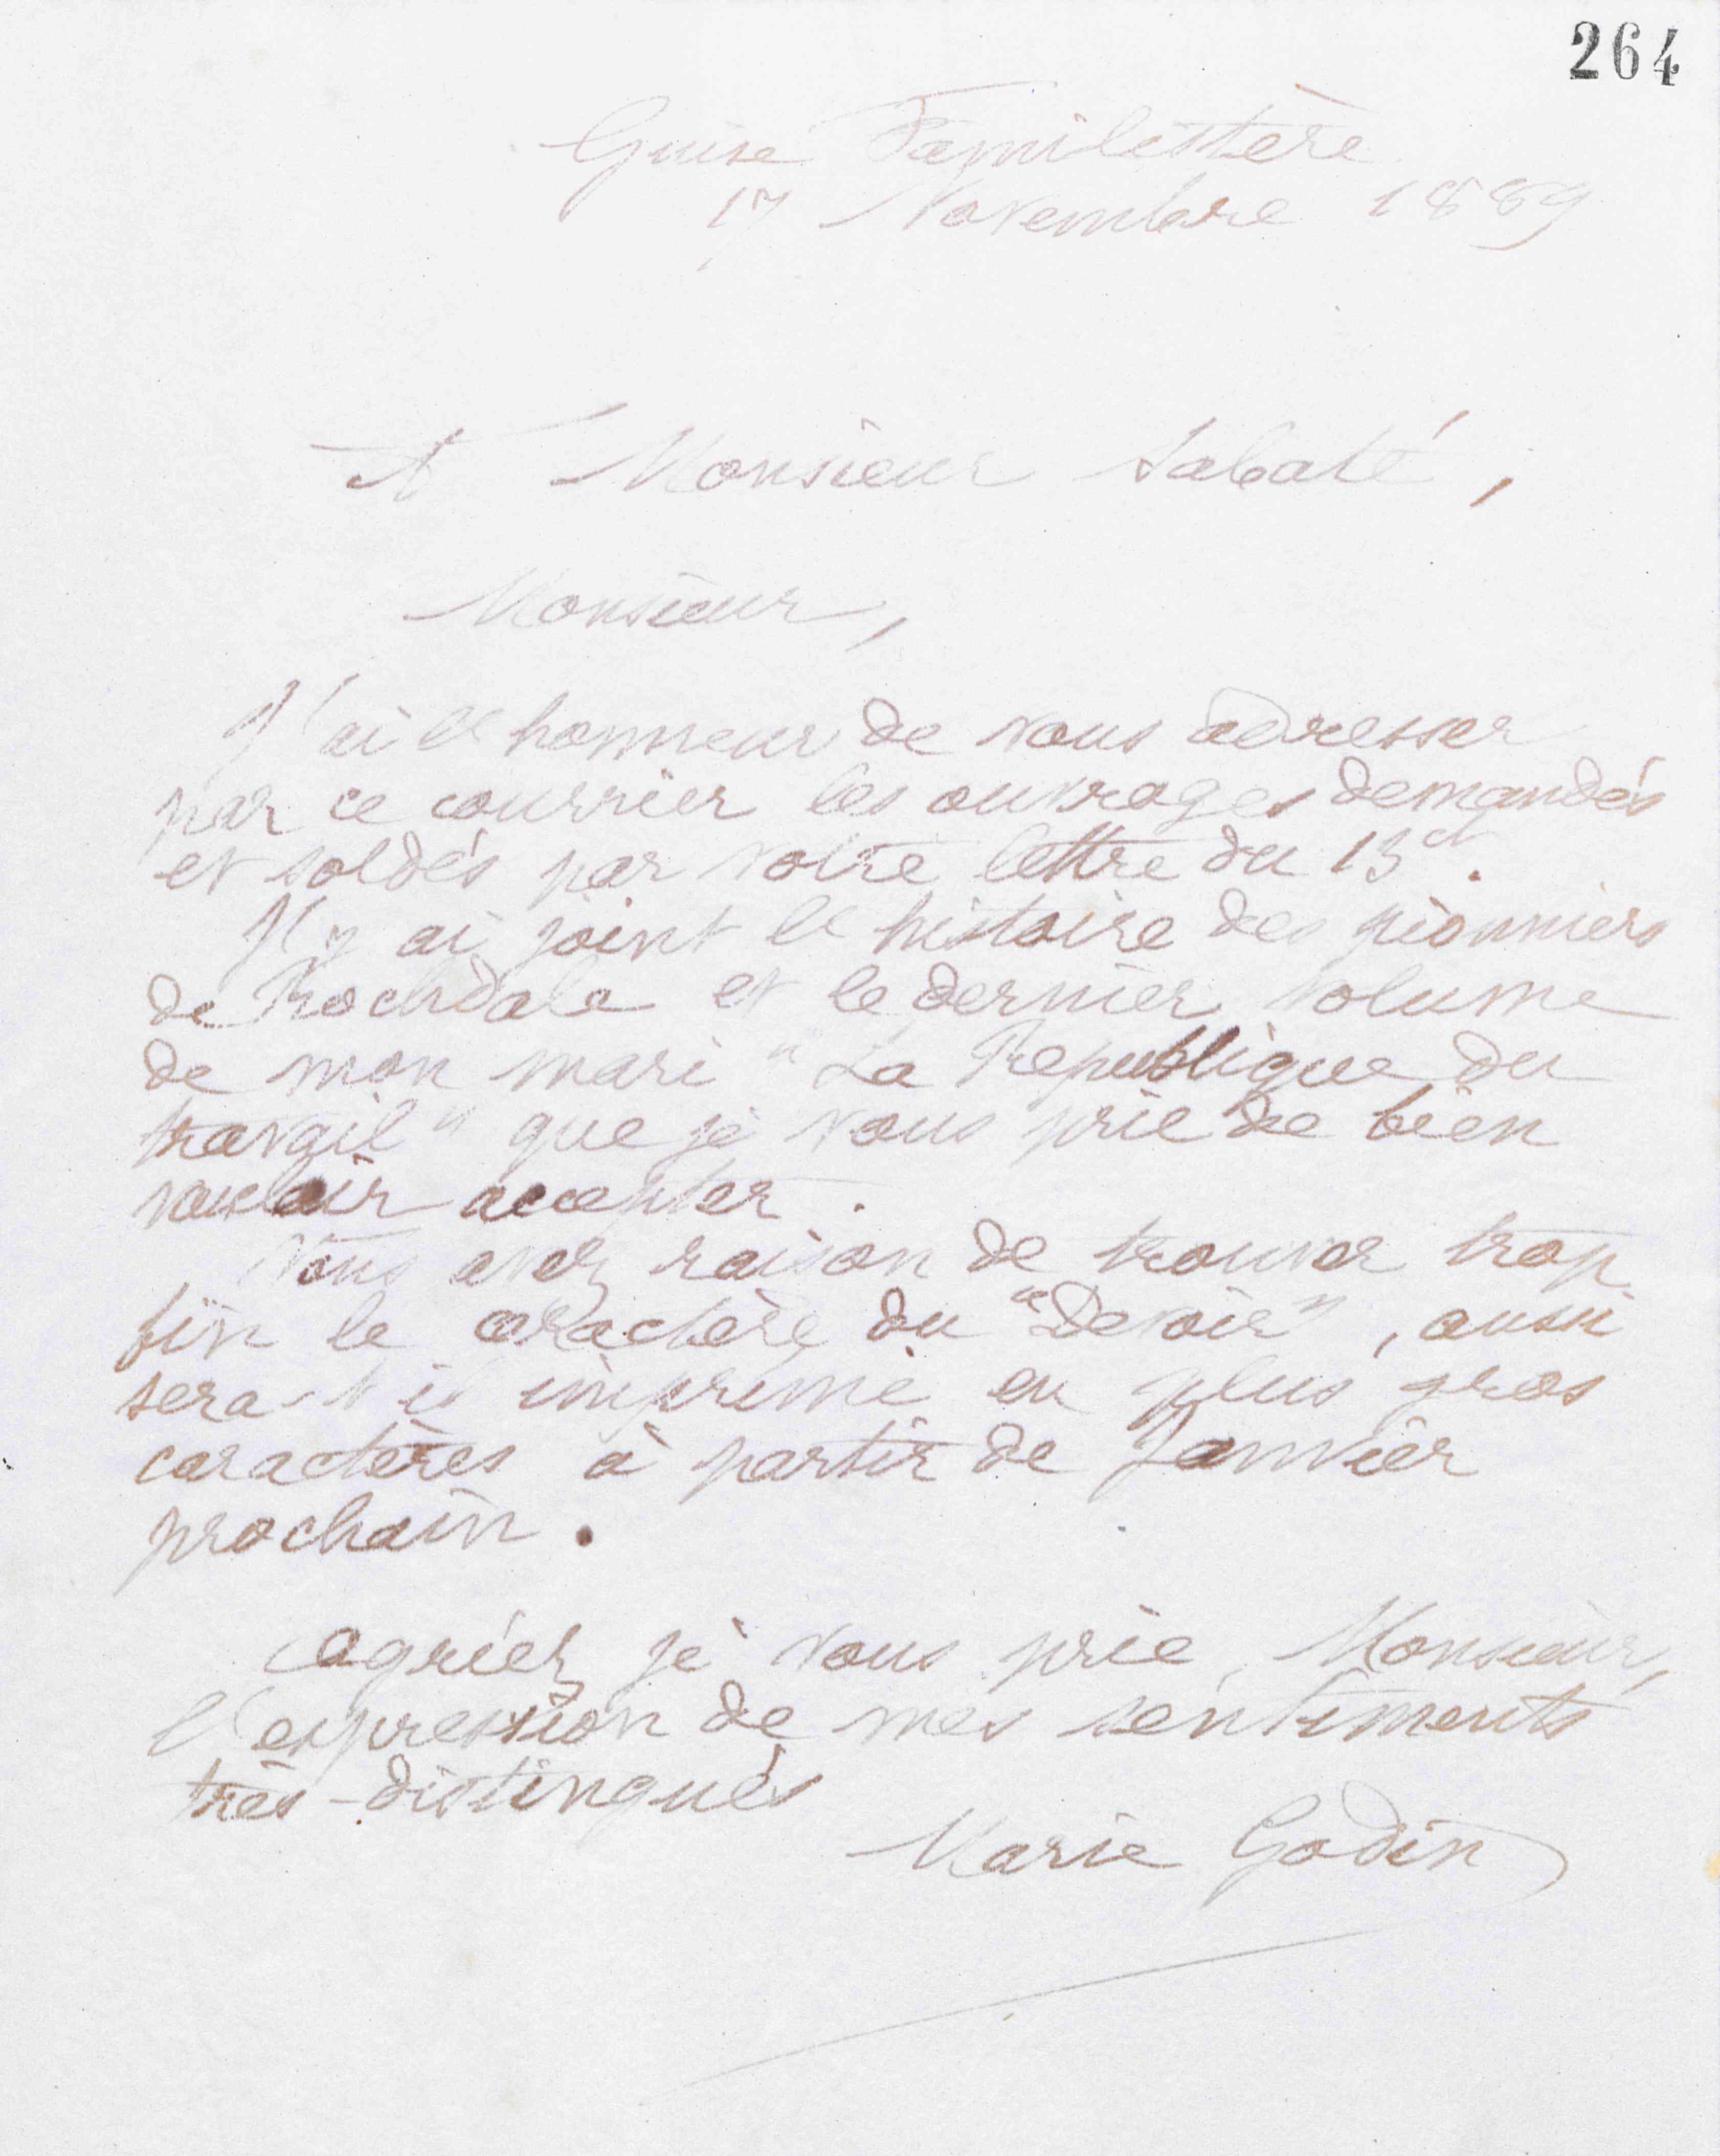 264
Guise Familistère
17 Novembre 1889
A Monsieur Sabaté,
Monsieur,
J'ai l'honneur de vous adresser
par ce courrier les ouvrages demandés
et soldés par votre lettre du 13 ct.
J'y ai joint l'histoire des pionniers
de Rochdale et le dernier volume
de mon mari "La République du
travail" que je vous prie de bien
vouloir accepter.
Vous avez raison de trouver trop
fin le caractère du "Devoir", aussi
sera-t-il imprimé en plus gros
caractères à partir de Janvier
prochain.
Agréez je vous prie, Monsieur,
l'expression de mes sentiments
très-distingués
Marie Godin